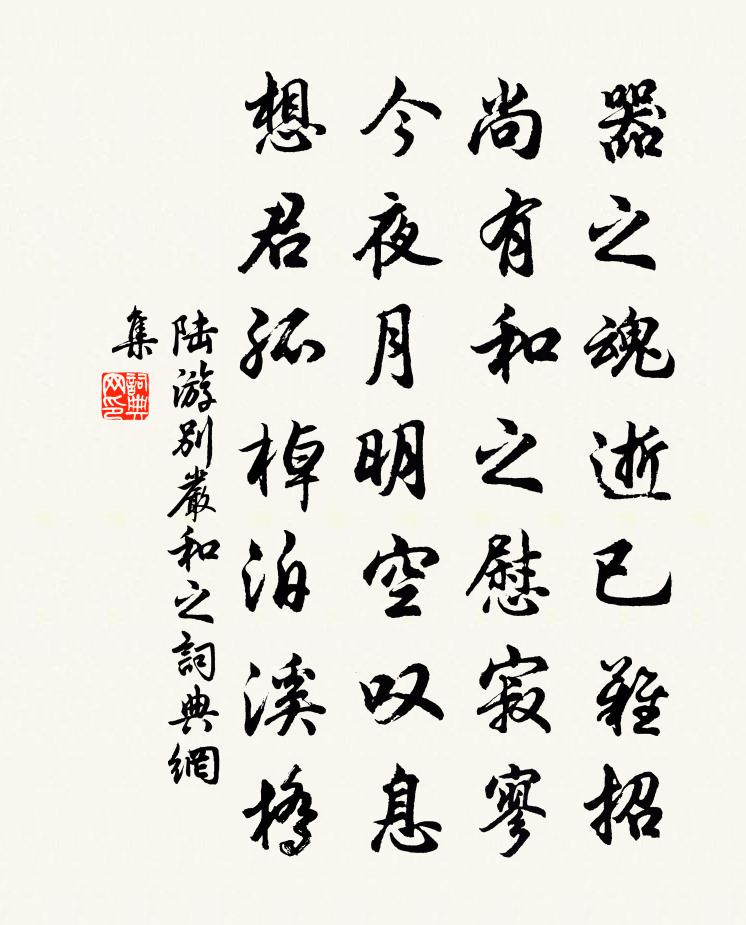 器之魂逝已難招
尚有和之慰寂寥
今夜月明空叹息
想君孤棹泊溪橋
陆游別嚴和之詞典網
集
詞典
网印